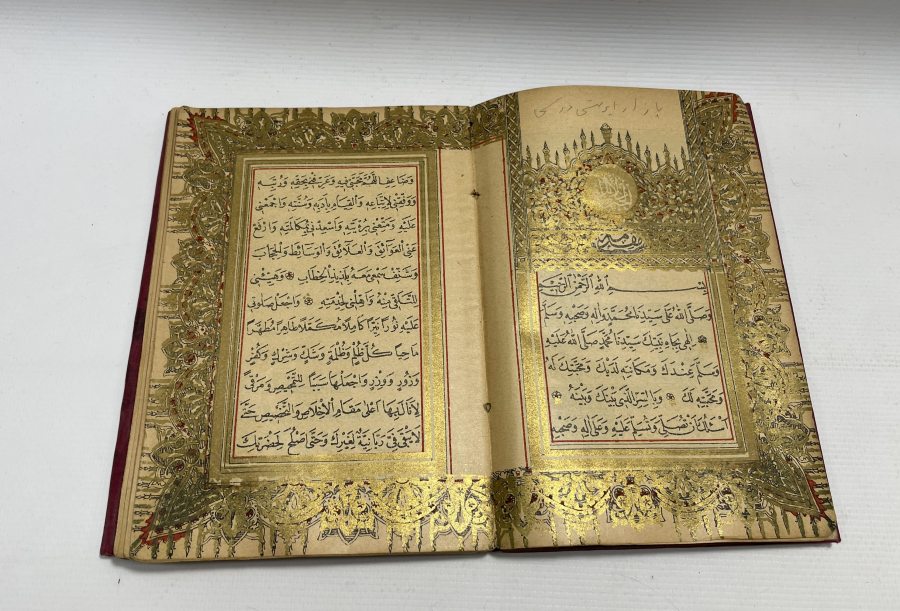 بازار ايرتسى
بِسْمِ اللهِ الرَّحْمٰنِ الرَّحِيمِ
وَصَلَّى اللهُ عَلَى سَيِّدِنَا مُحَمَّدٍ وَاٰلِهِ وَصَحْبِهِ وَسَلَّمَ
اِلٰهِي بِجَاهِ نَبِيِّكَ سَيِّدِنَا مُحَمَّدٍ صَلَّى اللهُ عَلَيْهِ
وَسَلَّمَ عِنْدَكَ وَمَكَانَتِهِ لَدَيْكَ وَمَحَبَّتِكَ لَهُ
وَمَحَبَّتِهِ لَكَ وَبِالسِّرِّ الَّذِي بَيْنَكَ وَبَيْنَهُ
اَسْئَلُكَ اَنْ تُصَلِّيَ وَتُسَلِّمَ عَلَيْهِ وَعَلَى اٰلِهِ وَصَحْبِهِ
وَضَاعِفِ اللّٰهُمَّ مَحَبَّتِي فِيهِ وَعَرِّفْنِي بِحَقِّهِ وَرُتَبِهِ
وَوَفِّقْنِي لِاتِّبَاعِهِ وَالْقِيَامِ بِاَدَبِهِ وَسُنَّتِهِ وَاجْمَعْنِي
عَلَيْهِ وَمَتِّعْنِي بِرُؤْيَتِهِ وَاَسْعِدْنِي بِمُكَالَمَتِهِ وَارْفَعْ
عَنِّي الْعَوَائِقَ وَالْعَلَائِقَ وَالْوَسَائِطَ وَالْحِجَابَ
وَشَنِّفْ سَمْعِي مَعَهُ بِلَذِيذِ الْخِطَابِ وَهَيِّئْنِي
لِلتَّلَقِّي مِنْهُ وَاَهِّلْنِي لِخِدْمَتِهِ وَاجْعَلْ صَلٰوتِي
عَلَيْهِ نُورًا نَيِّرًا كَامِلًا مُكَمَّلًا طَاهِرًا مُطَهَّرًا
مَاحِيًا كُلَّ ظُلْمٍ وَظُلْمَةٍ وَشَكٍّ وَشِرْكٍ وَكُفْرٍ
وَزُورٍ وَوِزْرٍ وَاجْعَلْهَا سَبَبًا لِلتَّمْحِيصِ وَمَرْقًى
لِاَنَالَ بِهَا اَعْلَى مَقَامِ الْاِخْلَاصِ وَالتَّخْصِيصِ حَتَّى
لَا يَبْقَى فِيَّ رَبَّانِيَّةٌ لِغَيْرِكَ وَحَتَّى اَصْلُحَ لِحَضْرَتِكَ